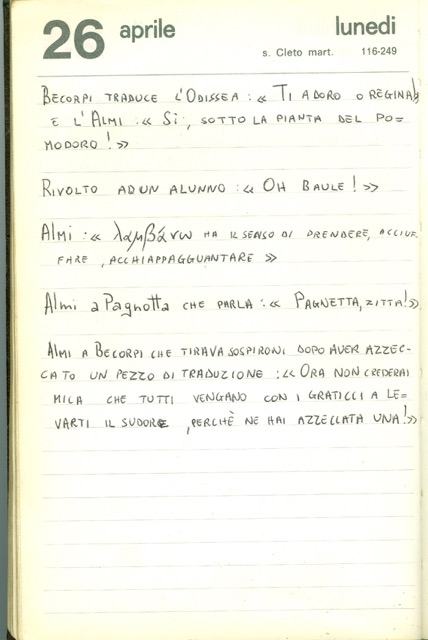 26 aprile lunedi
s. Cleto mart. 116-249
BECORPI TRADUCE L'ODISSEA : « TI ADORO O REGINA!»
E L'ALMI : « SI', SOTTO LA PIANTA DEL PO=
MODORO ! »
RIVOLTO AD UN ALUNNO : « OH BAULE ! »
ALMI : « λαμβάνω HA IL SENSO DI PRENDERE, ACCIUF=
FARE , ACCHIAPPAGGUANTARE »
Almi a Pagnotta CHE PARLA : « PAGNETTA, ZITTA!»
ALMI A BECORPI CHE TIRAVA SOSPIRONI DOPO AVER AZZEC-
CATO UN PEZZO DI TRADUZIONE : « ORA NON CREDERAI
MICA CHE TUTTI VENGANO CON I GRATICCI A LE=
VARTI IL SUDORE , PERCHÈ NE HAI AZZECCATA UNA!»